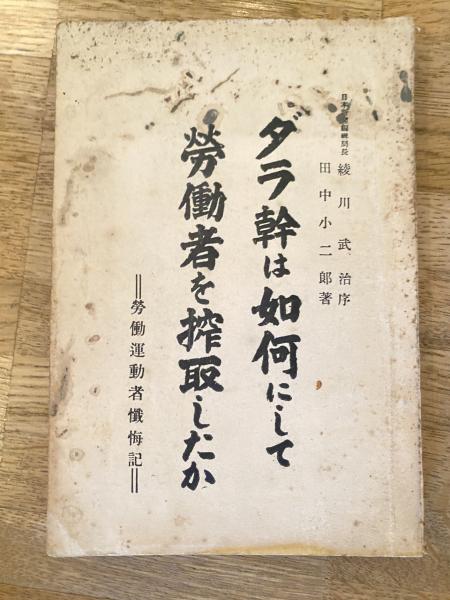 日本
局長 綾川武治序
田中小二郎著
ダラ幹は如何にして
勞働者を搾取したか
＝勞働運動者懺悔記＝